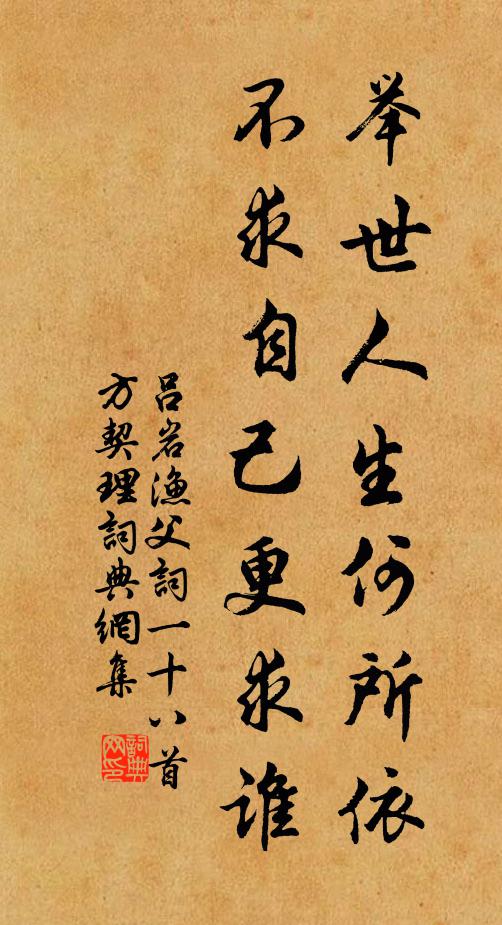 举世人生何所依
不求自己更求谁
吕岩渔父词一十八首
方契理詞典網集
詞典网印